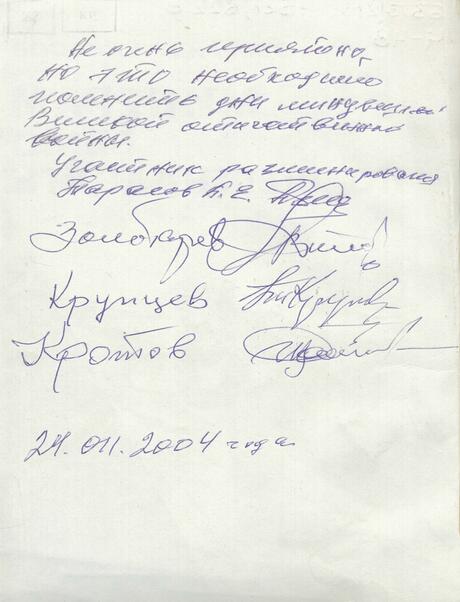 Не очень приятно,
но это необходимо
помнить дни минувшей
Великой отечественной
войны.
Участник разминирования
Тарасов
Крупцев
Кротов
2004 года